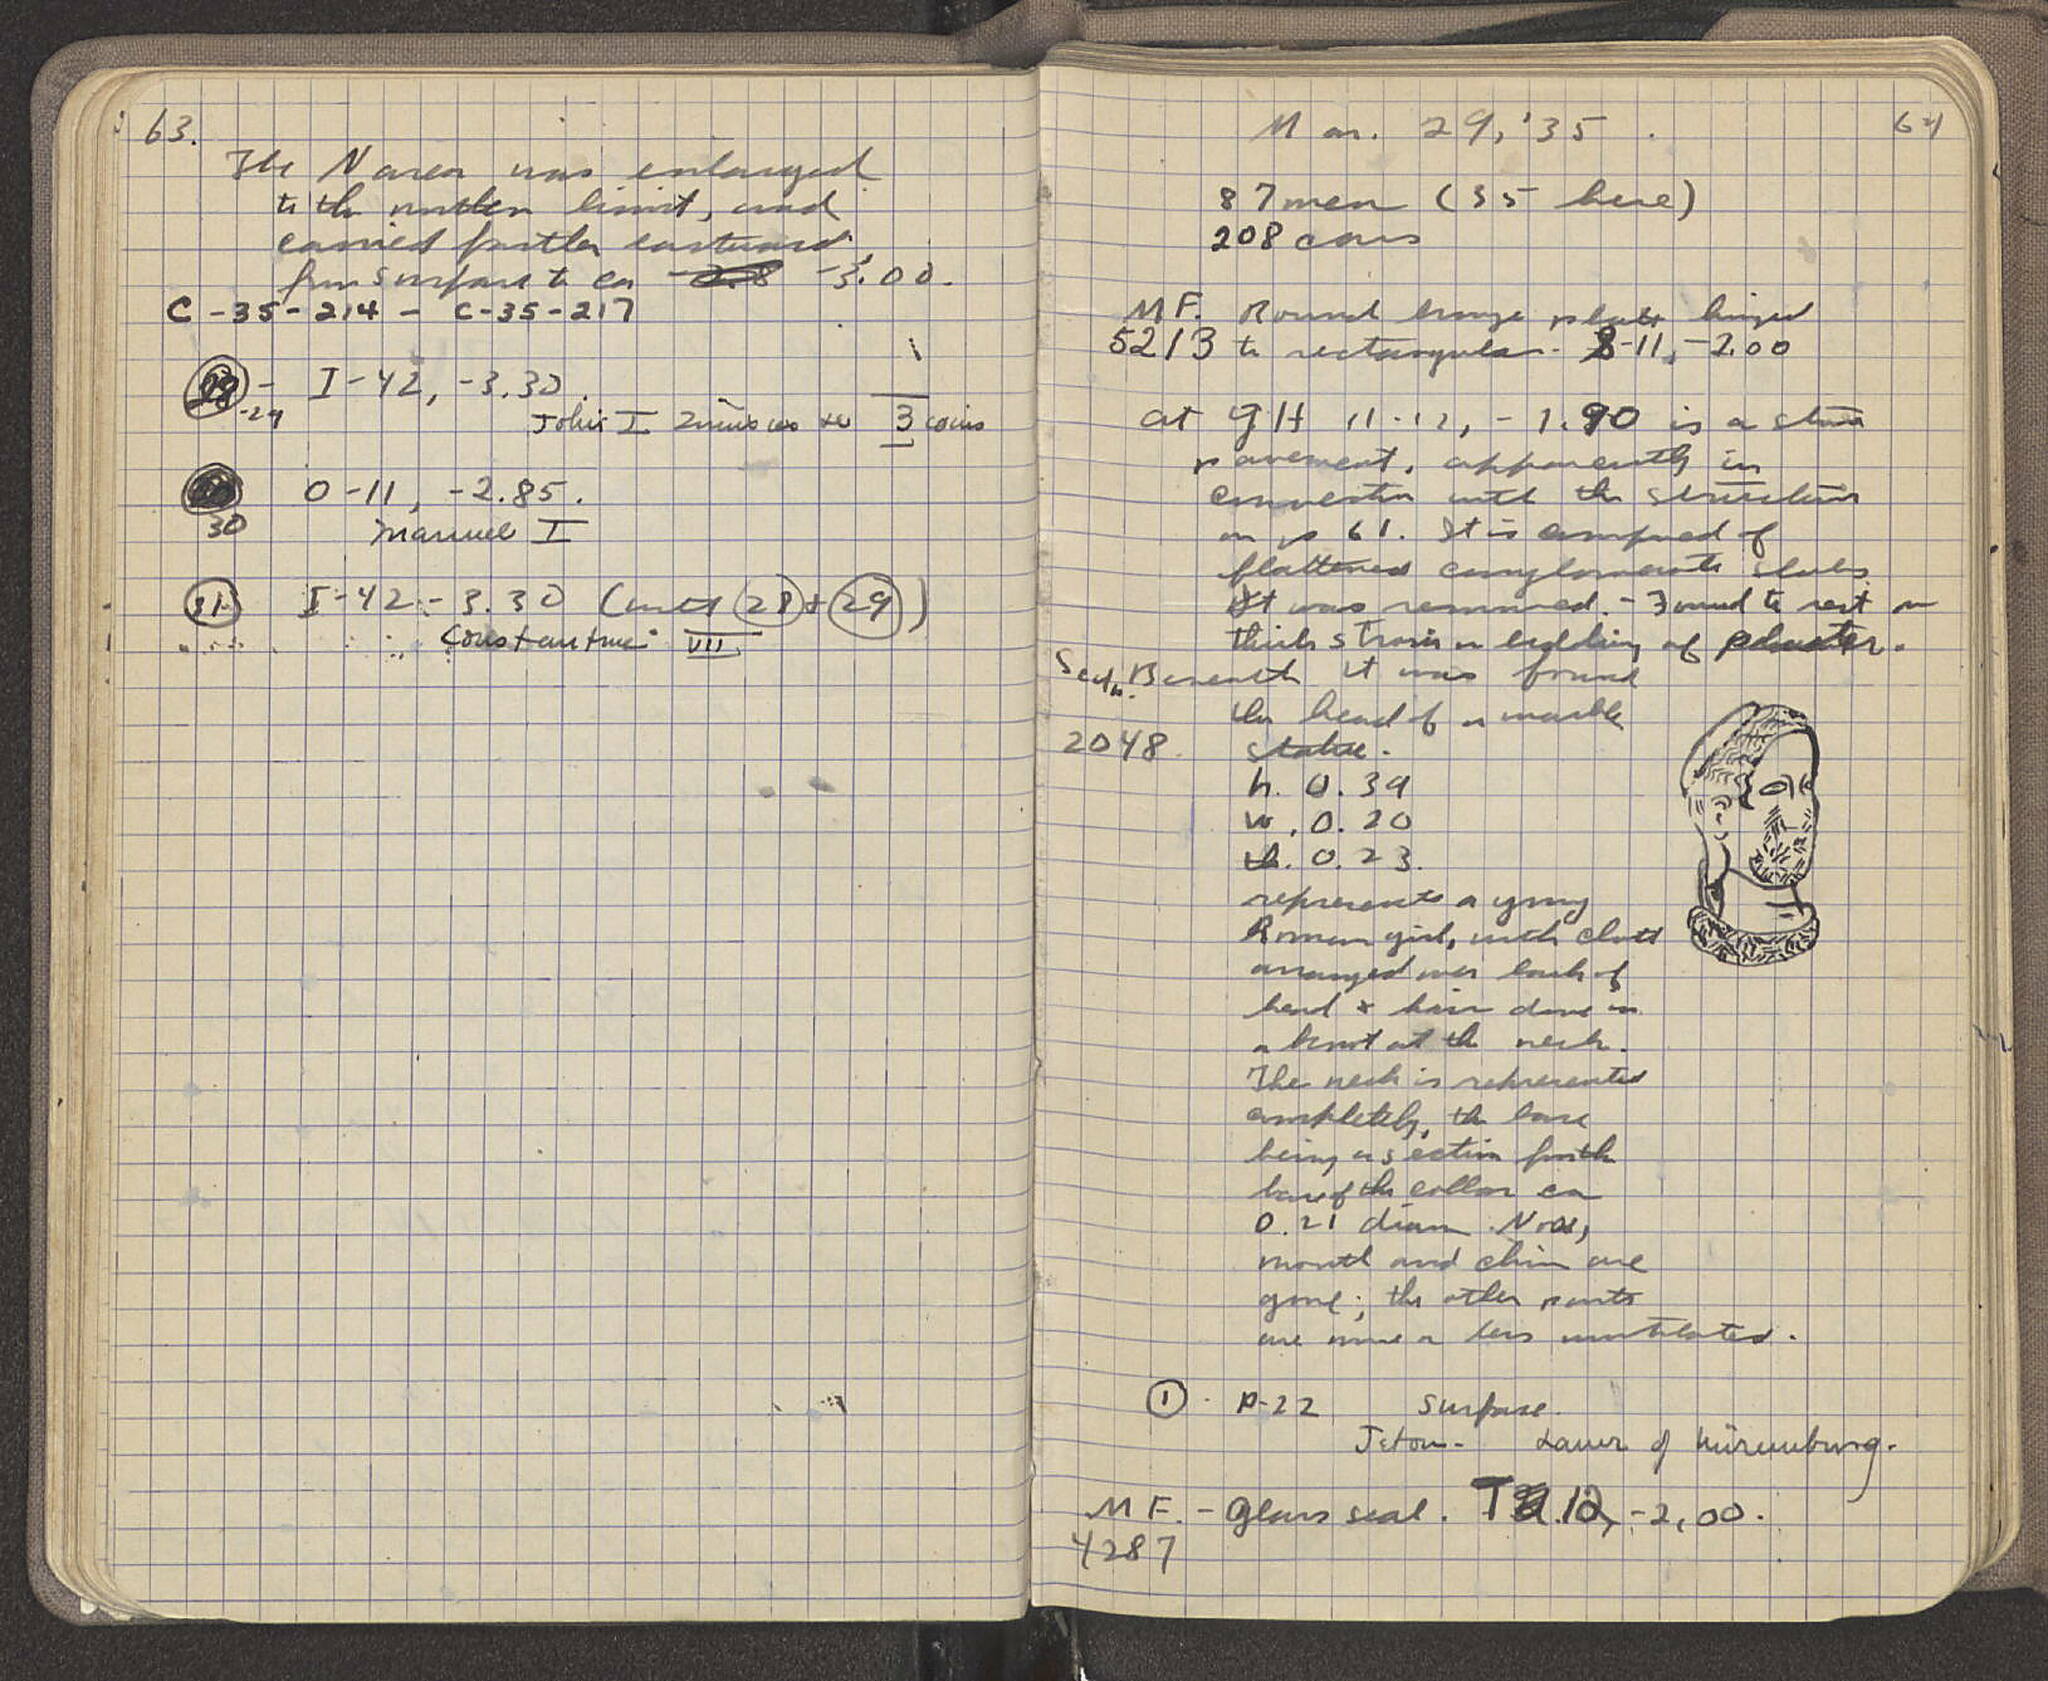 63.
The N area was enlarged
to the northern limit, and
carried further eastward,
from surface to ca -3.00.
C-35-214 - C-35-217
28 - I-42, -3.30.
-29
John I Zimisces 3 coins
O-11, -2.85.
30
Manuel I
31 I-42 - 3.30 (with 28 + 29)
Constantine VII
Mar. 29, '35
64
87 men (35 here)
208 cars
MF. Round bronze plate hinged
5213 to rectangular. 8-11, -2.00
At GH 11-12, -1.90 is a stone
pavement, apparently in
connection with the structure
on p 61. It is composed of
flattened conglomerate slabs.
It was removed. - Found to rest on
thick stratum bedding of plaster.
Beneath it was found
Sculp.
the head of a marble
2048. statue.
h. 0.39
w. 0.20
th. 0.23.
represents a young
Roman girl, with cloth
arranged over back of
head & hair done in
a knot at the neck.
The neck is represented
completely, the base
being a section for the
base of the collar ca
0.21 diam. Nose,
mouth and chin are
gone; the other parts
are more or less mutilated.
1 P-22 Surface.
Jeton - Lauer of Nüremburg.
MF. - Glass seal. -2.00.
4287